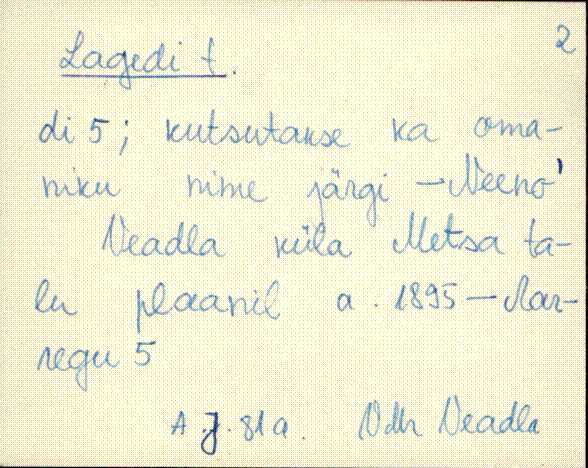 2
Lagedi t.
di 5; kutsutakse ka oma-
niku nime järgi - Neeno'
Neadla küla Metsa ta-
lu plaanil a. 1895 - Aar-
regu 5
A.J. 81 a. Vdr Neadla